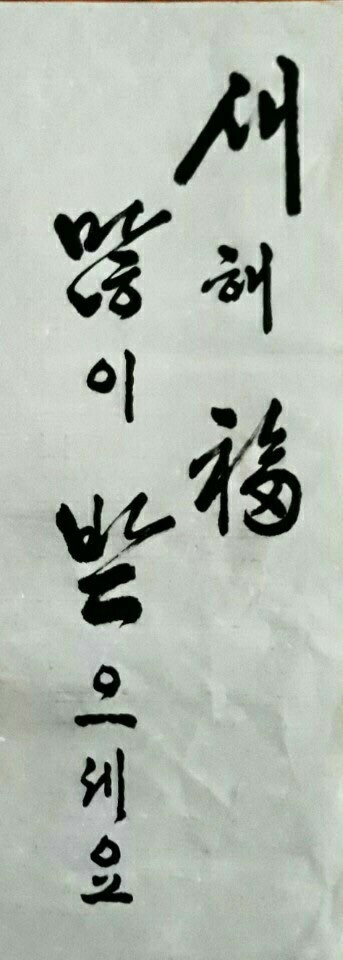 새해 福
많이 받으세요